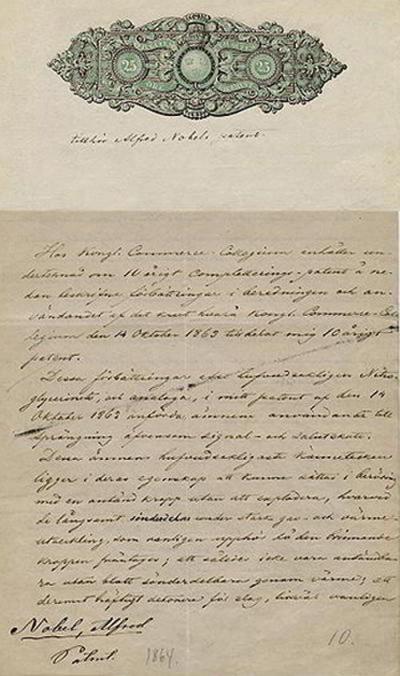 25 25
tillhör Alfred Nobels patent.
Hos Kongl. Commerce-Collegium anhåller un-
dertecknad om 10 årigt Completterings-patent å ne-
dan beskrifne förbättringar i beredningen och an-
vändandet af det krut hvarå Kongl. Commerce-Col-
legium den 14 Oktober 1863 tilldelat mig 10 årigt
patent.
Dessa förbättringar afse hufvudsakligen Nitro-
glycerinets, och analoga, i mitt patent af den 14
Oktober 1863 anförda, ämnens användande till
sprängning äfvensom signal- och salutskott.
Dessa ämnens hufvudsakligaste kännetecken
ligger i deras egenskap att kunna sättas i beröring
med en antänd kropp utan att explodera, hvarvid
de långsamt sönderdelas under stark gas- och värme-
utveckling, som vanligen upphör då den brinnande
kroppen fråntages; att således icke vara antändba-
ra utan blott sönderdelbara genom värme; att
deremot häftigt detonera för slag, hvarvid vanligen
Nobel, Alfred
Patent. 1864. 10.